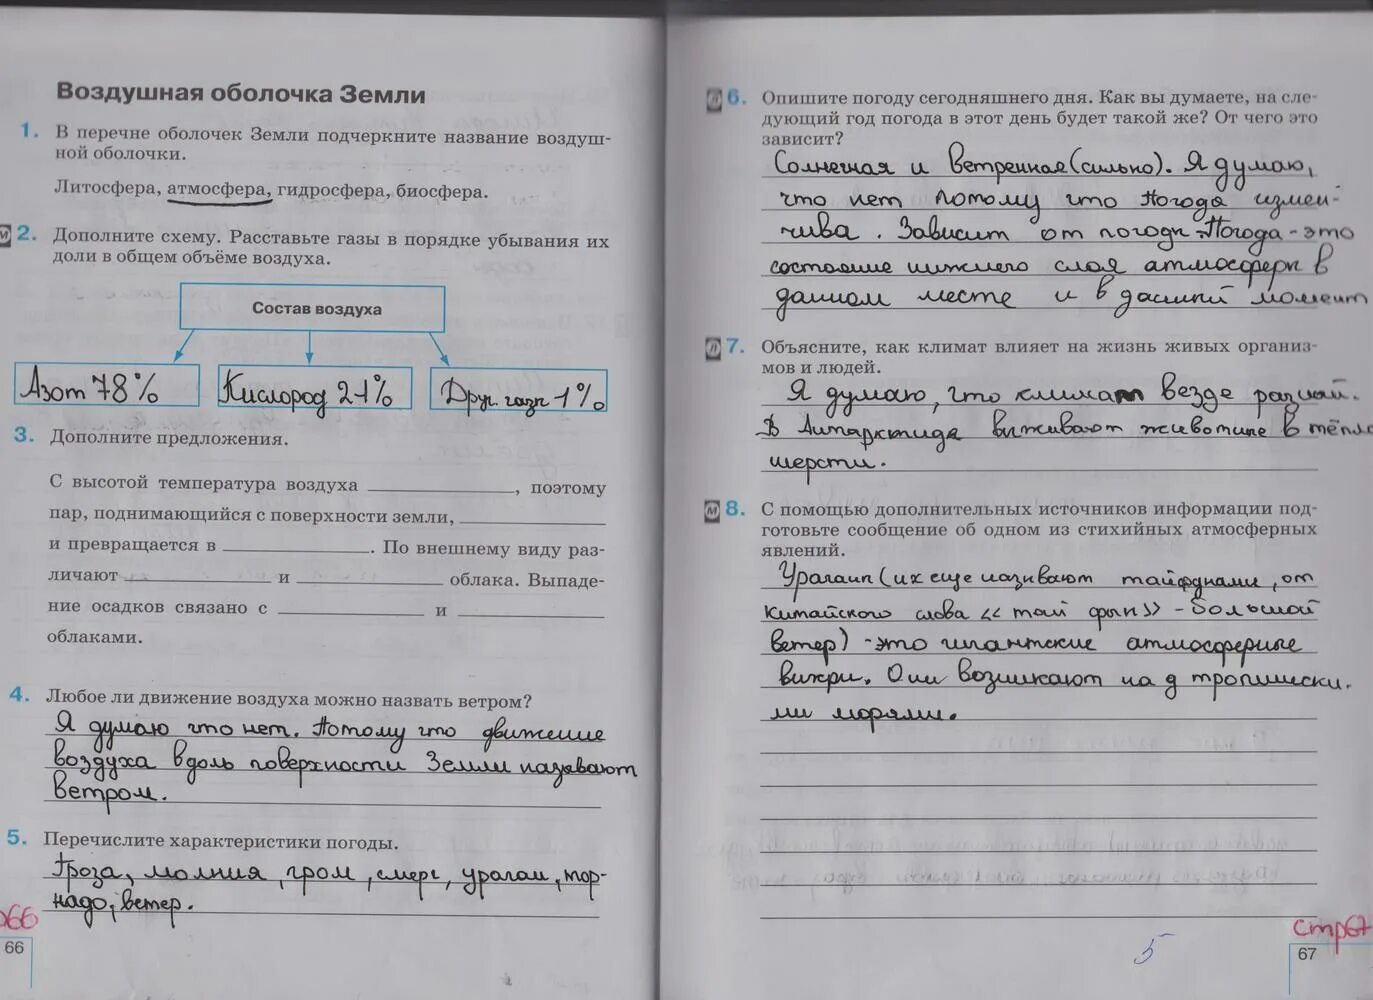 Воздушная оболочка Земли
1. В перечне оболочек Земли подчеркните название воздуш-
ной оболочки.
Литосфера, атмосфера, гидросфера, биосфера.
М 2. Дополните схему. Расставьте газы в порядке убывания их
доли в общем объёме воздуха.
Состав воздуха
Азот 78% Кислород 21% Друг. газы 1%
3. Дополните предложения.
С высотой температура воздуха ____________, поэтому
пар, поднимающийся с поверхности земли, ____________
и превращается в ____________. По внешнему виду раз-
личают ____________ и ____________ облака. Выпаде-
ние осадков связано с ____________ и ____________
облаками.
4. Любое ли движение воздуха можно назвать ветром?
Я думаю что нет. Потому что движение
воздуха вдоль поверхности Земли называют
ветром.
5. Перечислите характеристики погоды.
Гроза, молния, гром, смерч, ураган, тор-
надо, ветер.
66
66
Л 6. Опишите погоду сегодняшнего дня. Как вы думаете, на сле-
дующий год погода в этот день будет такой же? От чего это
зависит?
Солнечная и ветренная (сильно). Я думаю,
что нет потому что погода измен-
чива. Зависит от погоды. Погода - это
состояние нижнего слоя атмосферы в
данном месте и в данный момент
Л 7. Объясните, как климат влияет на жизнь живых организ-
мов и людей.
Я думаю, что климат везде разный.
В Антарктида выживают животные в тёпло
шерсти.
М 8. С помощью дополнительных источников информации под-
готовьте сообщение об одном из стихийных атмосферных
явлений.
Ураган (их еще называют тайфунами, от
китайского слова «тай фын» - большой
ветер) - это гигантские атмосферные
вихри. Они возникают над тропически.
ми морями.
5
стр67
67